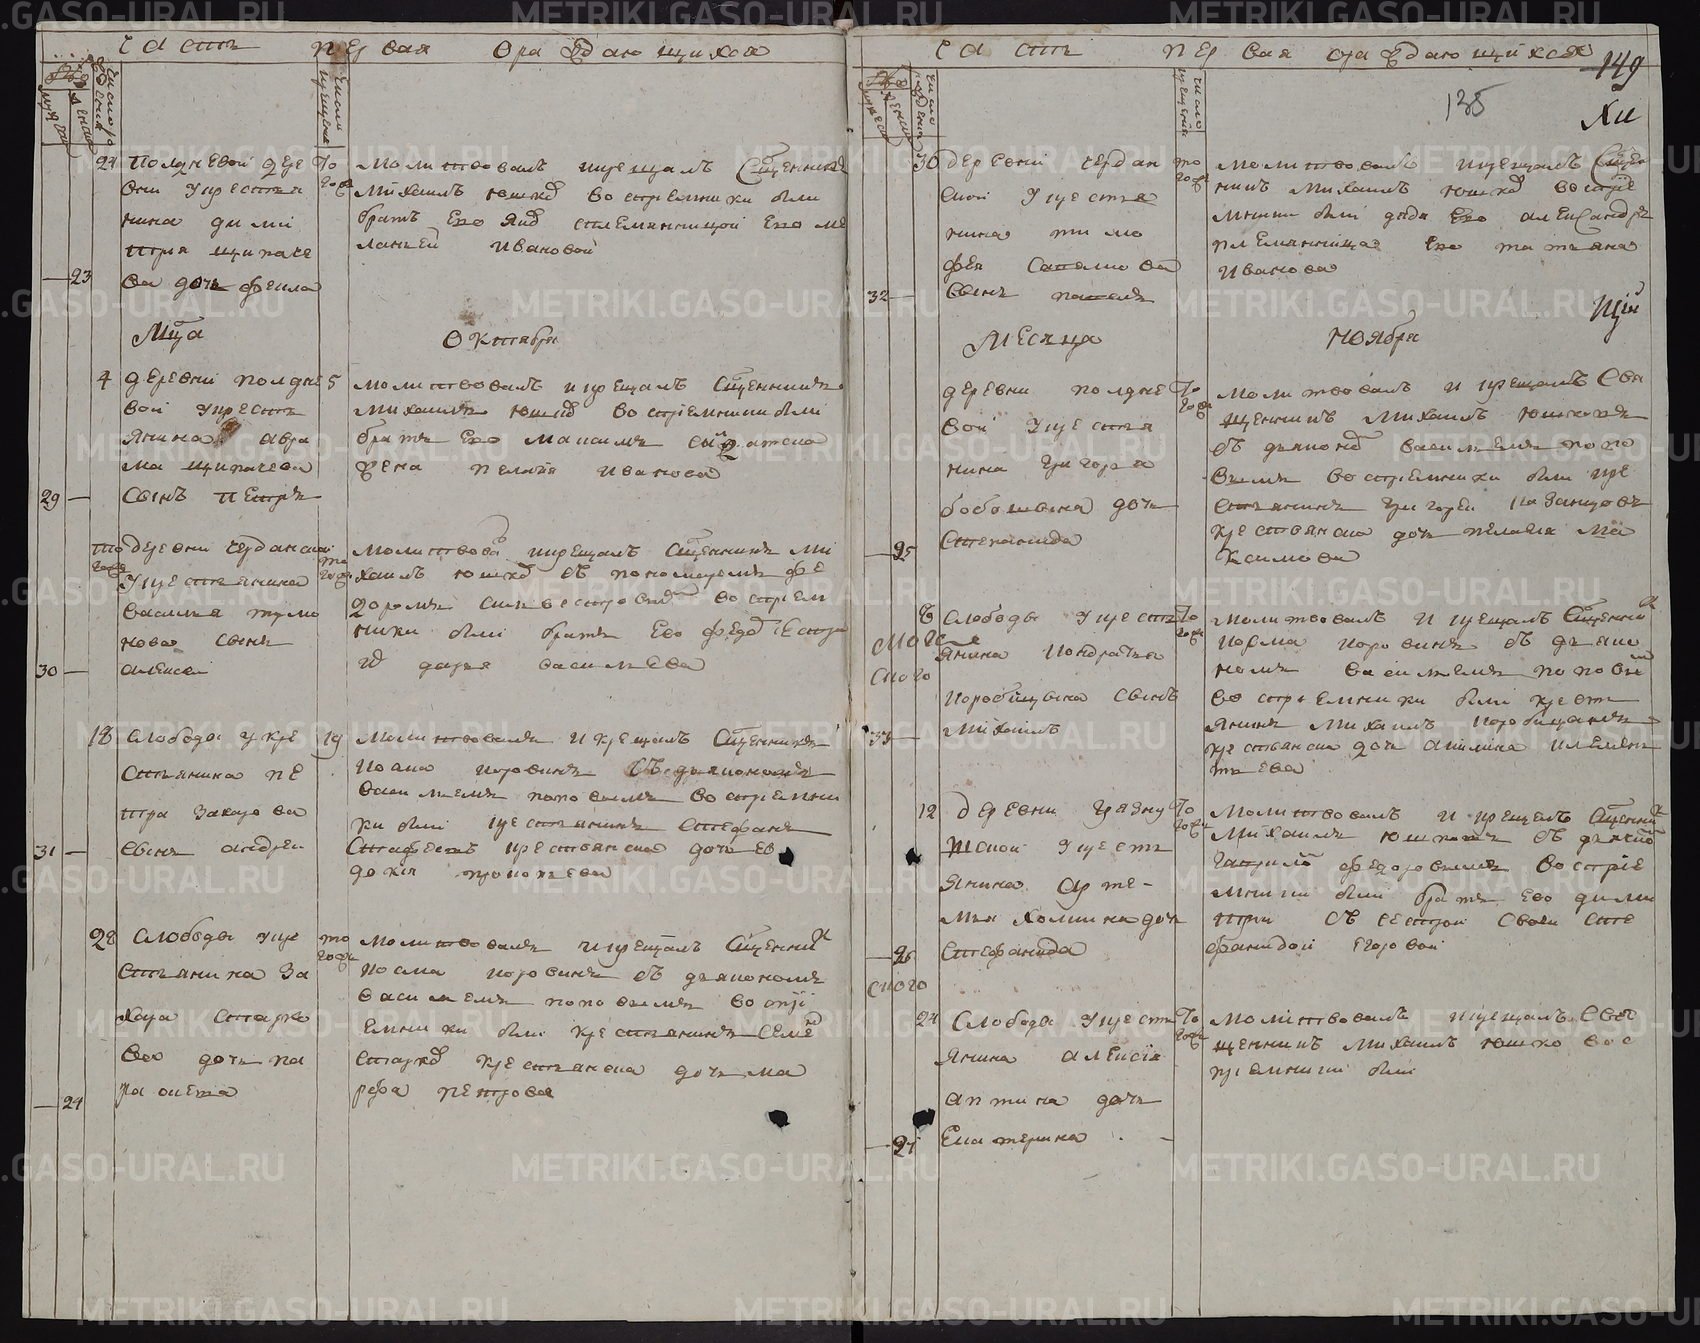 Часть первая о раждающихся
число рождения
число крещения
мужеска
женска
24 Полдневой дере
вни у крестья
нина Дими
трия Щипаче
23 ва дочь Фекла
того ж
молитвовалъ и крещалъ священникъ
Михаилъ Юшковъ восприемники были
братъ ево Яков с племянницой ево Ме
ланьей Ивановой
Мца Октября
4 деревни Полдне
вой у кресть
янина Авра
ма Щипачева
29 сынъ Петръ
5
молитвовалъ и крещалъ священникъ
Михаилъ Юшков восприемники были
братъ ево Максимъ
жена Пелагия Иванова
того ж деревни Черданской
у крестьянина
Василья Тимо
нова сынъ
30 Алексей
того ж
молитвова и крещалъ священникъ Ми
хаилъ Юшков съ пономаремъ Фе
доромъ Сильвестровым восприем
ники были братъ ево Федор сестра
и Дарья Васильева
18 слободы у кре
стьянина Пе
тра Захарова
31 сынъ Андрей
19
молитвовалъ и крещалъ священникъ
Козма Коровинъ съ дьякономъ
Васильемъ Поповымъ восприемни
ки были крестьянинъ Стефанъ
крестьянска дочь Ев
докия Прокопьева
28 слободы у кре
стьянина За
хара Старко
ва дочь Па
24 раскева
того ж
молитвовалъ и крещалъ священник
Козма Коровинъ съ дьякономъ
Васильемъ Поповымъ воспри
емники были крестьянинъ Семен
Старков крестьянска дочь Ма
рфа Петрова
Часть первая о раждающихся
149
135
число рождения
число крещения
мужеска
женска
30 деревни Чердан
ской у крестья
нина Тимо
фея Савелиова
32 сынъ Павелъ
того ж
молитвовалъ и крещалъ священ
никъ Михаилъ Юшков воспрiе
мники были дядя ево Александръ
племянница ево Татьяна
Иванова
Месяца Ноября
деревни Полдне
вой у крестья
нина Григорья
Бобошина дочь
25 Степанида
того ж
молитвовалъ и крещалъ свя
щенникъ Михаилъ Юшковъ
съ дьяконом Васильемъ Попо
вымъ восприемники были кре
стьянинъ Григорей Казанцовъ
крестьянска дочь Пелагия Ма
ксимова
6 слободы у кресть
янина Кондратья
Коробицына сынъ
33 Михаилъ
того ж
молитвовалъ и крещалъ священник
Козма Коровинъ съ дьяко
номъ Васильемъ Поповым
восприемники были кресть
янинъ Михаилъ Коробицынъ
крестьянска дочь Акилина Клемен
тьева
12 деревни Грязну
шской у кресть
янина Арте
мья Холкина дочь
26 Стефанида
того ж
молитвовалъ и крещалъ священник
Михаилъ Юшковъ съ дьячком
Гаврилом Федоровымъ воспрiе
мники были братъ ево Дими
трии съ сестрой своей Сте
фанидой Егоровой
24 слободы у кресть
янина Алексия
Аптина дочь
27 Екатерина
того ж
молитвовалъ и крещалъ свя
щенникъ Михаилъ Юшков вос
приемники были